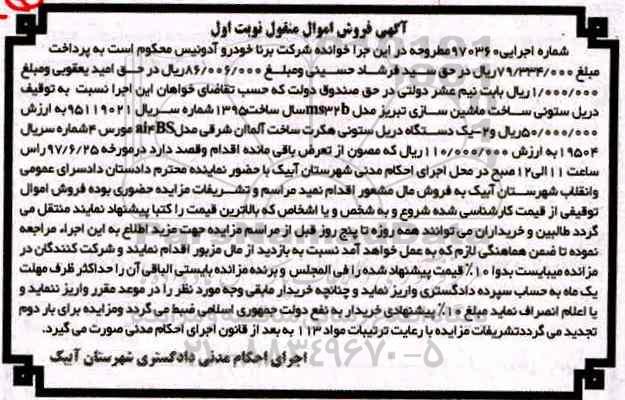 آگهی فروش اموال منقول نوبت اول
شماره اجرایی۹۷۰۳۶۰مطروحه در این جرا خوانده شرکت برنا خودرو آدونیس محکوم است به پرداخت
مبلغ ۷۹/۳۳۴/۰۰۰ریال در حق سید فرشاد حسینی ومبلغ ۸۶/۰۰۶/۰۰۰ریال در حق امید یعقوبی ومبلغ
۱/۰۰۰/۰۰۰ریال بابت نیم عشر دولتی در حق صندوق دولت که حسب تقاضای خواهان این اجرا نسبت به توقیف
دریل ستونی ساخت ماشین سازی تبریز مدل ms۳۲bسال ساخت۱۳۹۵شماره سریال ۹۵۱۱۹۰۲۱به ارزش
۵۰/۰۰۰/۰۰۰ریال و۲-یک دستگاه دریل ستونی هکرت ساخت آلمان شرقی مدلai۴BS مورس ۴شماره سریال
۱۹۵۰۴ به ارزش ۱۱۰/۰۰۰/۰۰۰ریال که مصون از تعرض باقی مانده اقدام وقصد دارد درمورخه ۹۷/۶/۲۵راس
ساعت ۱۱الی۱۲صبح در محل اجرای احکام مدنی شهرستان آبیک با حضور نماینده محترم دادستان دادسرای عمومی
وانقلاب شهرستان آبیک به فروش مال مشعور اقدام نمید مراسم و تشریفات مزایده حضوری بوده فروش اموال
توقیفی از قیمت کارشناسی شده شروع و به شخص و یا اشخاص که بالاترین قیمت را کتبا پیشنهاد نمایند منتقل می
گردد طالبین و خریداران می توانند همه روزه تا پنج روز قبل از مراسم مزایده جهت مزید اطلاع به این اجراء مراجعه
نموده تا ضمن هماهنگی لازم که به عمل خواهد آمد نسبت به بازدید از مال مزبور اقدام نمایند و شرکت کنندگان در
مزانده میبایست بدوا ۱۰٪ قیمت پیشنهاد شده را فی المجلس و برنده مزانده بایستی الباقی آن را حداکثر ظرف مهلت
یک ماه به حساب سپرده دادگستری واریز نماید و چنانچه خریدار مابقی وجه مورد نظر را در موعد مقرر واریز ننماید و
یا اعلام انصراف نماید مبلغ ۱۰٪ پیشنهادی خریدار به نفع دولت جمهوری اسلامی ضبط می گردد ومزایده برای بار دوم
تجدید می گرددتشریفات مزایده با رعایت ترتیبات مواد ۱۱۳ به بعد از قانون اجرای احکام مدنی صورت می گیرد.
اجرای احکام مدنی دادگستری شهرستان آبیک
۰۲۱-۸۸۳۴۹۶۷۰-۵